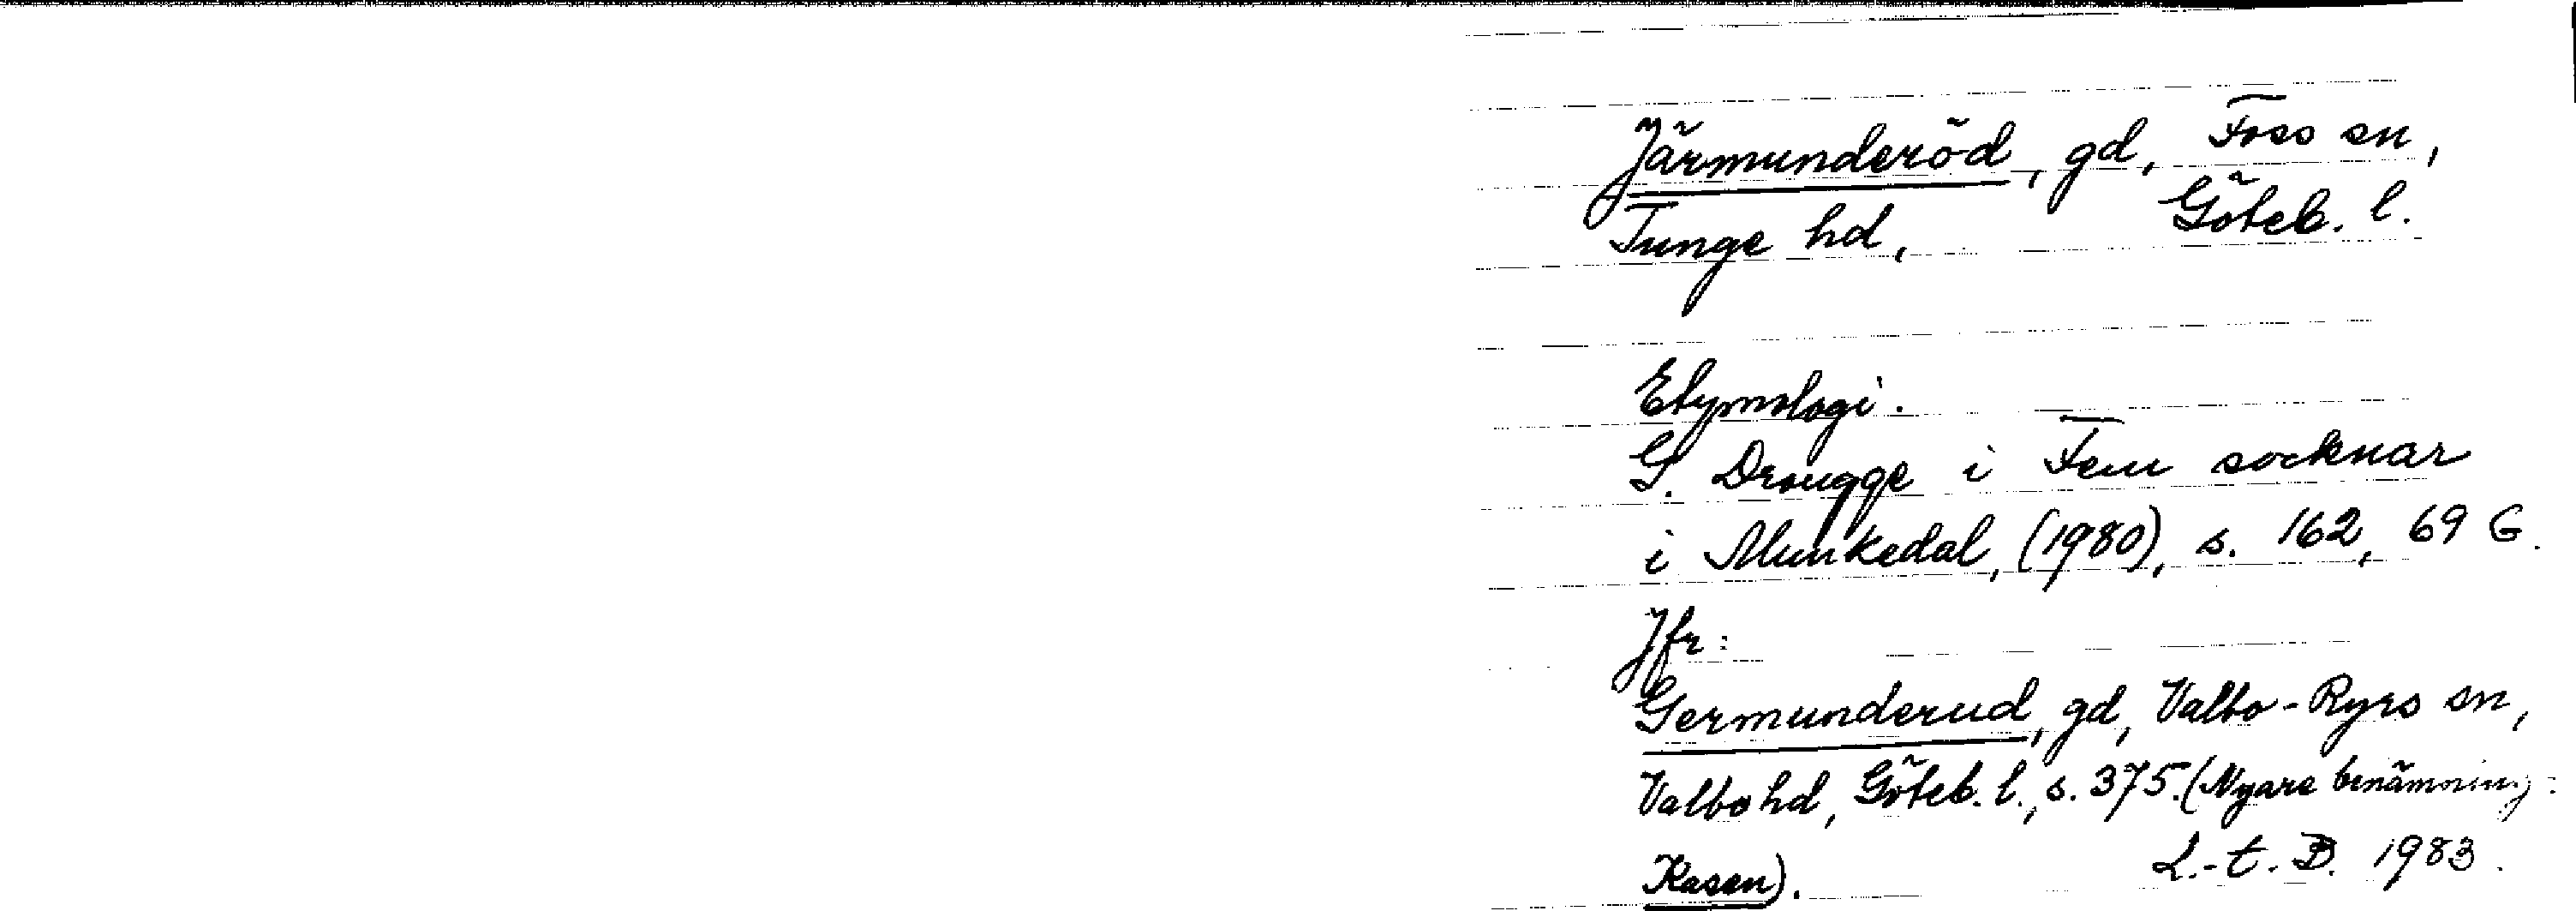 Järmunderöd, gd, Foss sn,
Tunge hd, Göteb. l.
Etymologi.
G. Drougge i Fem socknar
i Munkedal, (1980), s. 162, 69 G.
Jfr:
Germunderud, gd, Valbo-Ryrs sn,
Valbo hd, Göteb. l., s. 375. (Nyare benämning:
Kasen). L.-t. B. 1983.